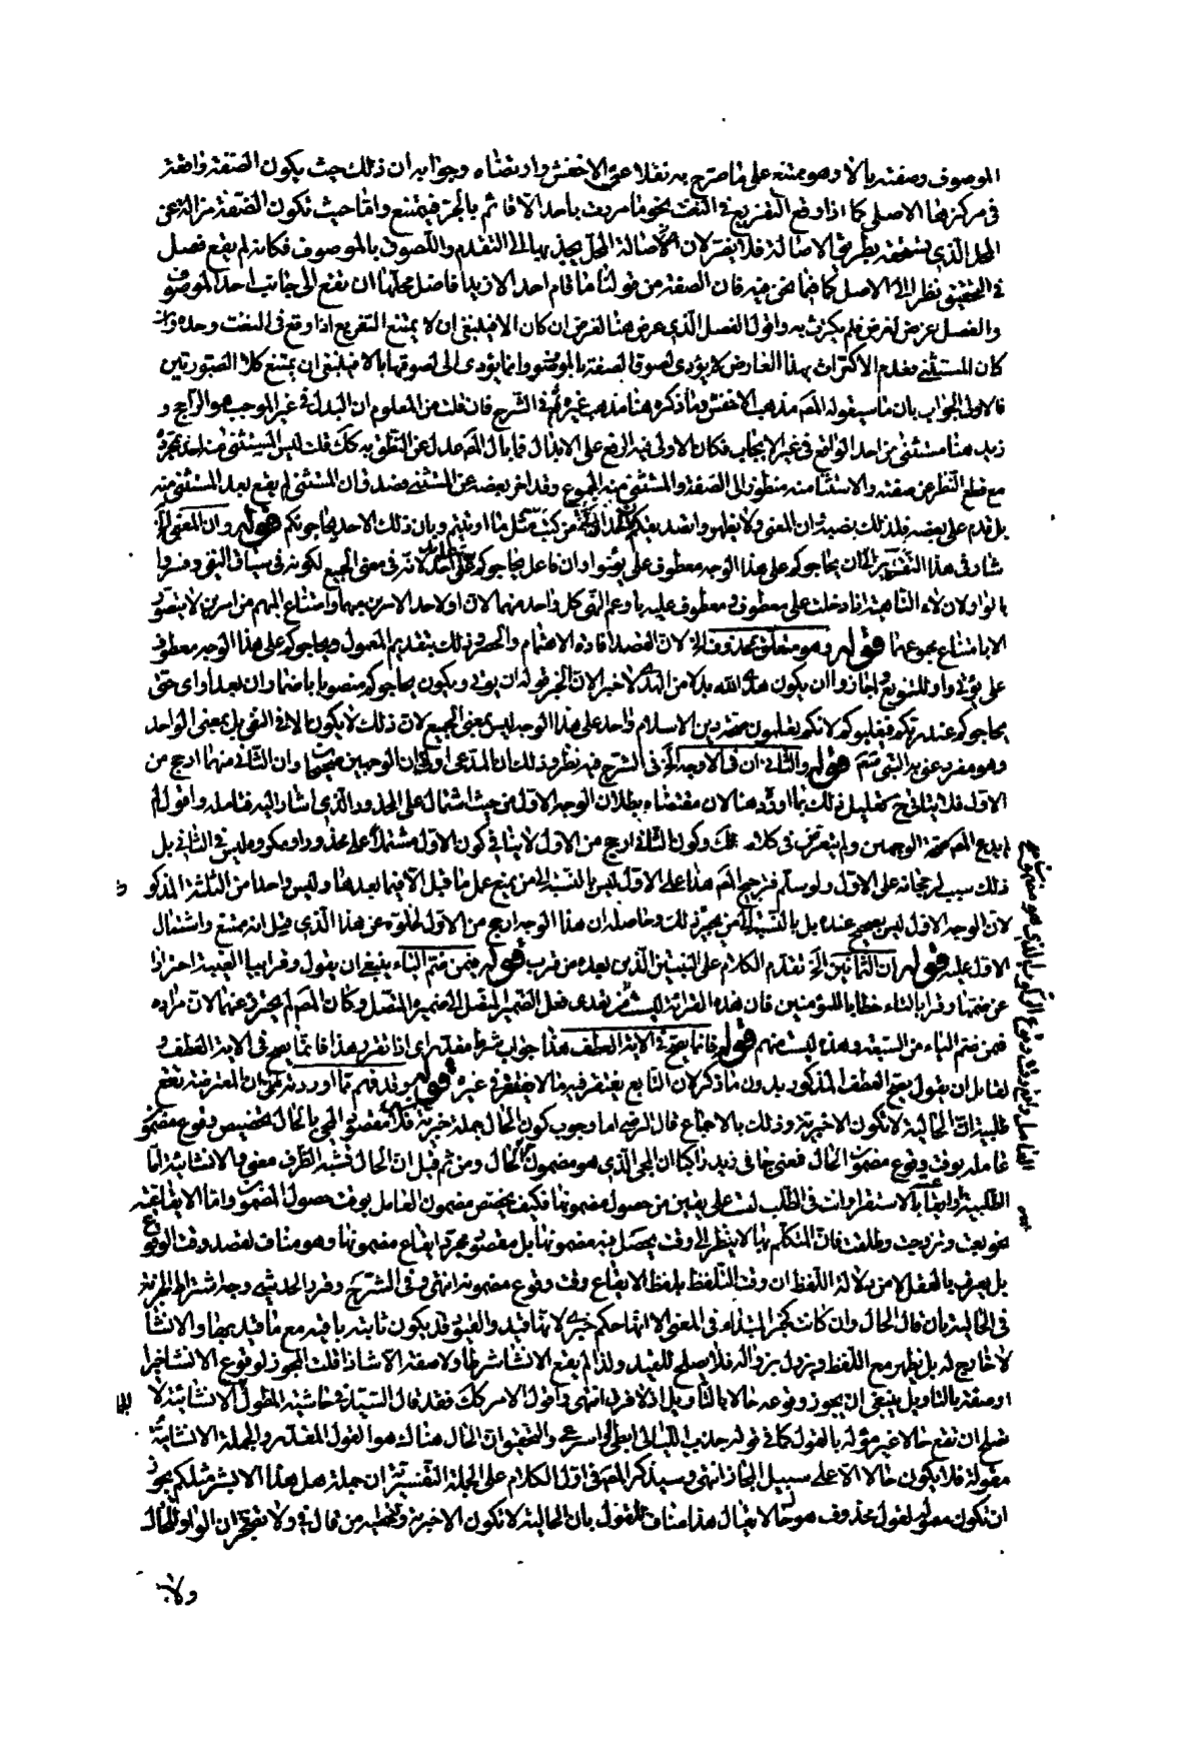 الموصوف وصفته بالا وهو ممتنع على ما صرح به نقلا عن الاخفش وارتضاه وجوابه ان ذلك حيث يكون الصفة واقعة
فى مركزها الاصلى كما اذا وقع التفريغ فى النعت نحو ما مررت باحد الا قائم بالجر فيمتنع واما حيث تكون الصفة مزالة عن
المحل الذى تستحقه بطريق الاصالة فلا يضر لان الاصالة المحل يجذبها الى التقدم واللصوق بالموصوف فكانه لم يقع فصل
فى التحقيق نظرا الى الاصل كما فيما نحن فيه فان الصفة من قولنا ما قام احد الا زيدا فاضل محلها ان تقع الى جانب احد الموصوف
والفصل عرض لغرض فلم يكترث به واقول الفصل الذى عرض هنا لغرض ان كان الا فينبغى ان لا يمتنع التفريغ اذا وقع فى النعت وحده وان
كان المستثنى فعدم الاكتراث بهذا العارض لا يؤدى لصوق الصفة بالموصوف وانما يؤدى الى لصوقها بالا فينبغى ان يمتنع كلا الصورتين
فالاولى الجواب بان ما سيقوله المص مذهب الاخفش وما ذكره هنا مذهب غيره فى الشرح فان قلت من المعلوم ان البدل فى غير الموجب هو الراجح و
زيد هنا مستثنى من احد الواقع فى غير الايجاب فكان الاولى فيه الرفع على الابدال فما بال المص عدل عن النطق به كك قلت ليس المستثنى منه احد بمجرده
مع قطع النظر عن صفته والاستثناء منه منظور الى الصفة والمستثنى منه المجموع وقد اخر بعضه عن المستثنى فصدق ان المستثنى لم يقع بعد المستثنى منه
بل قدم على بعضه فلذلك نصبه ان المعنى ولا تظهروا تصديقكم من كتب مثل ما اوتيتم وبان ذلك الاحد يحاجونكم قوله وان المعنى الخ
شار فى هذا التفسير الى ان يحاجوكم على هذا الوجه معطوف على يؤتوا وان فاعل يحاجوكم على احد لانه فى معنى الجمع لكونه فى سياق النفى وفسروا
بالواو لان لاء الناهية اذا دخلت على معطوف ومعطوف عليه باو عم النهى كل واحد منهما لان او لاحد الامرين مبهما وامتناع المبهم من امرين لا يتصور
الا بامتناع مجموعهما قوله وهو متعلق بمحذوف لان القصد افادة الاهتمام والحصر وذلك بتقديم المعمول ويحاجوكم على هذا الوجه معطوف
على يؤتى واو للتنويع واجازوا ان يكون هدى الله بدلا من الهدى لا خبر لان الخبر قوله ان يؤتى ويكون يحاجوكم منصوبا باضمار ان بعد او اى حتى
يحاجوكم عند ربكم فيغلبوكم لانكم تعلمون صحة دين الاسلام واحد على هذا الوجه ليس بمعنى الجمع لان ذلك لا يكون الا فى النفى بل بمعنى الواحد
وهو مفرد عنى به النبى صلعم قوله والثانى ان فى الاوجه الخ فى الشرح فيه نظر وذلك ان المدعى اولا ان الوجهين صحيحان وان الثانى منهما ارجح من
الاول فلا يتاتى ح تعليل ذلك بما اورده هنا لان مقتضاه بطلان الوجه الاول من حيث اشتماله على المحذور الذى اشار اليه فتامله واقول لم
يدع المص صحة الوجهين ولم يتعرض فى كلامه لذلك وكون الثانى ارجح من الاول لا ينافى كون الاول مشتملا على محذور او مكروه ليس فى الثانى بل
ذلك سبب لرجحانه على الاول ولو سلم فترجيح المص هذا على الاول ليس بالنسبة الى من يمنع عمل ما قبل الا فيما بعدها وليس واحدا من الثلثة المذكو
لان الوجه الاول ليس بصحيح عنده بل بالنسبة الى من يجيز ذلك وحاصله ان هذا الوجه ارجح من الاول لخلوه عن هذا الذى قيل انه ممتنع واشتمال
الاول عليه قوله ان الثمانين الخ تقدم الكلام على البيتين الذين بعده من قرب قوله فيمن ضم الباء ينبغى ان يقول وقرا بياء الغيبة احترازا
عن ضمها وقرا بالتاء خطابا للمؤمنين فان هذه القراءة ليست من تعدى فعل الضمير المتصل الى ضميره المتصل وكان المص لم يحترز عنها لان مراده
فمن ضم الباء من السبعة وهذه ليست منهم قوله فانما يصح فى الاية العطف هذا جواب شرط مقدر اى اذا تقرر هذا فانما يصح فى الاية العطف و
لقائل ان يقول يصح العطف المذكور بدون ما ذكر لان التابع يغتفر فيه ما لا يغتفر فى غيره قوله وقد فهم مما اوردته ان المعترضة تقع
طلبية ان الحالية لا تكون الا خبرية وذلك بالاجماع قال الرضى اما وجوب كون الحال جملة خبرية فلان مقصود المجئ بالحال تخصيص وقوع مضمون
عامله بوقت وقوع مضمون الحال فمعنى جاءنى زيد راكبا ان المجئ الذى هو مضمون العامل ومن ثم قيل ان الحال تشبه الظرف معنى والانشائية اما
الطلبية وايقاعية بالاستقراء وانت فى الطلب لست على يقين من حصول مضمونها فكيف تخصص مضمون العامل بوقت حصول المضمون واما الايقاعية
نحو بعت وتزوجت وطلقت فان المتكلم بها لا ينظر الى وقت يحصل فيه مضمونها بل مقصوده مجرد ايقاع مضمونها وهو مناف لقصد وقت الوقوع
بل يعرف بالعقل لا من دلالة اللفظ ان وقت التلفظ بلفظ الايقاع وقت وقوع مضمونه انتهى وفى الشرح وقرر الحديثى وجه اشتراط الخبرية
فى الحالية بان قال الحال وان كانت كخبر المبتداء فى المعنى الا انها حكم خبرى لانها قيد والقيود قد يكون ثابتة باقية مع ما قيد بها والانشاء
لا خارج له بل يظهر مع اللفظ ويزول بزواله فلا يصلح للقيد ولذا لم يقع الانشاء شرطا ولا صفة الا شاذا قلت المجوز لوقوع الانشاء خبرا
او صفة بالتاويل ينبغى ان يجوز وقوعه حالا بالتاويل اذ لا فرق انتهى واقول الامر كك فقد قال السيد فى حاشية المطول الانشائية لا
تصلح ان تقع حالا غير مؤله بالقول كما فى قوله جذب الليالى ابطئى او اسرعى والتحقيق ان الحال هناك هو القول المقدر والجملة الانشائية
مقولة فلا يكون حالا الا على سبيل المجاز انتهى وسيذكر المص فى اول الكلام على الجملة التفسيرية ان جملة هل هذا الا بشر مثلكم يجوز
ان تكون معمولة لقول محذوف هو حال لا يقال هذا مناف للقول بان الحالية لا تكون الا خبرية وتخطئة من قال فى ولا تضجر ان الواو للحال
ولا